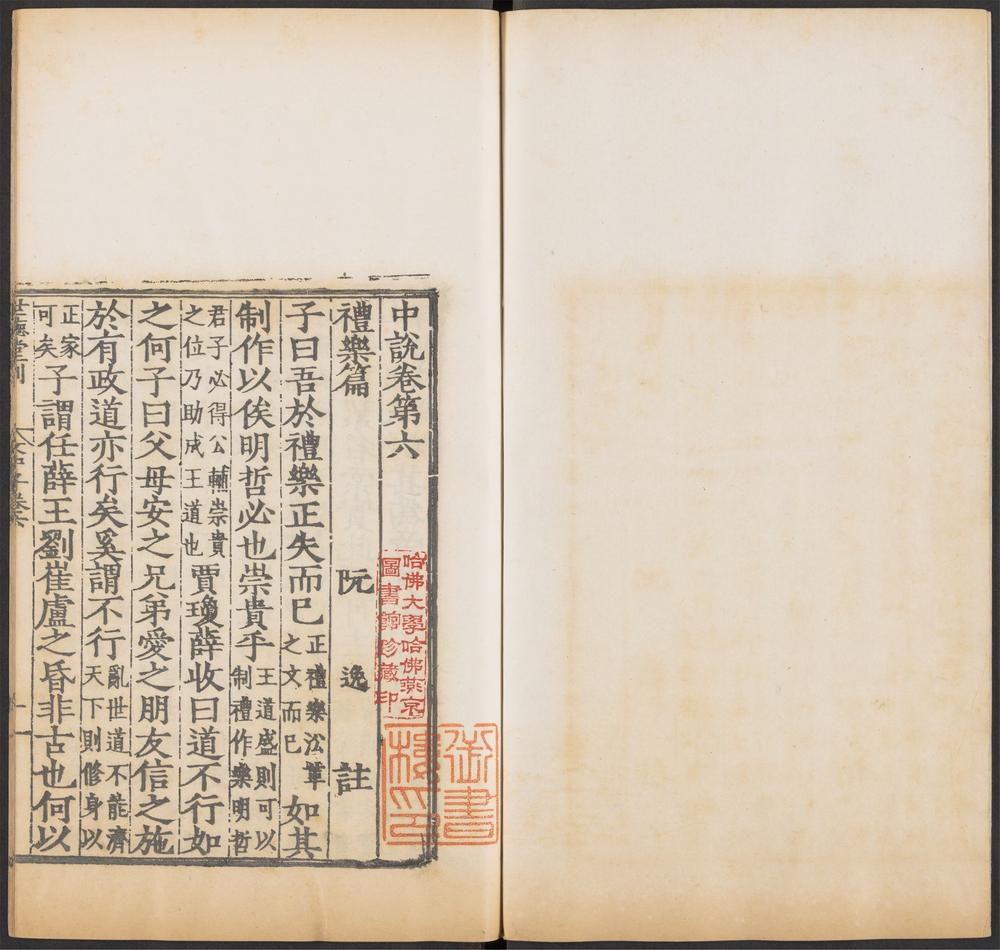 中說卷第六
禮樂篇 阮 逸 註
子曰吾於禮樂正失而已正禮樂訟葦之文而已如其
制作以俟明哲必也崇貴乎王道盛則可以制禮作樂明哲
君子必得公輔崇貴之位乃助成王道也賈瓊薛收曰道不行如
之何子曰父母安之兄弟愛之朋友信之施
於有政道亦行矣奚謂不行亂世道不能濟天下則修身以
正家可矣子謂任薛王劉崔盧之昏非古也何以
世德堂刊
哈佛大學哈佛燕京
圖書館珍藏印
御書